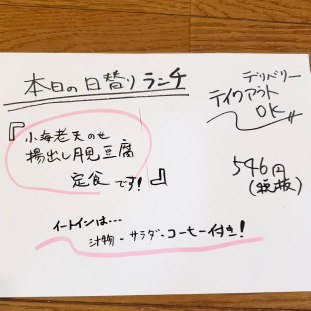 本日の日替りランチ
デリバリー
テイクアウト
OK
『小海老天のせ
揚出し月見豆腐
定食です!』
546円
(税抜)
イートインは…
汁物・サラダ・コーヒー付き!